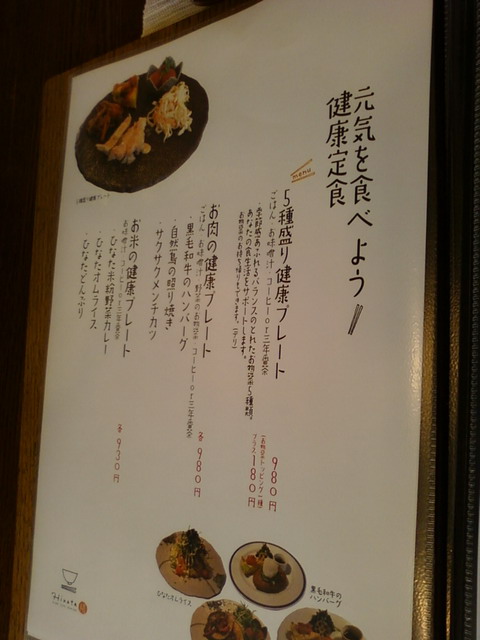 元気を食べよう
健康定食
menu
5種盛り健康プレート
ごはん お味噌汁 コーヒーor三年番茶
・季節感あふれるバランスのとれたお惣菜5種類。
あなたの食生活をサポートします。
お惣菜のお持ち帰りもできます。(デリ)
980円
(お惣菜トッピング1種)
プラス180円
お肉の健康プレート
ごはん お味噌汁 野菜のお惣菜 コーヒーor三年番茶
・黒毛和牛のハンバーグ
・自然鶏の照り焼き
・サクサクメンチカツ
各980円
お米の健康プレート
お味噌汁 コーヒーor三年番茶
・ひなた米糀野菜カレー
・ひなたオムライス
・ひなたどんぶり
各930円
5種盛り健康プレート
ひなたオムライス
黒毛和牛の
ハンバーグ
Hinata